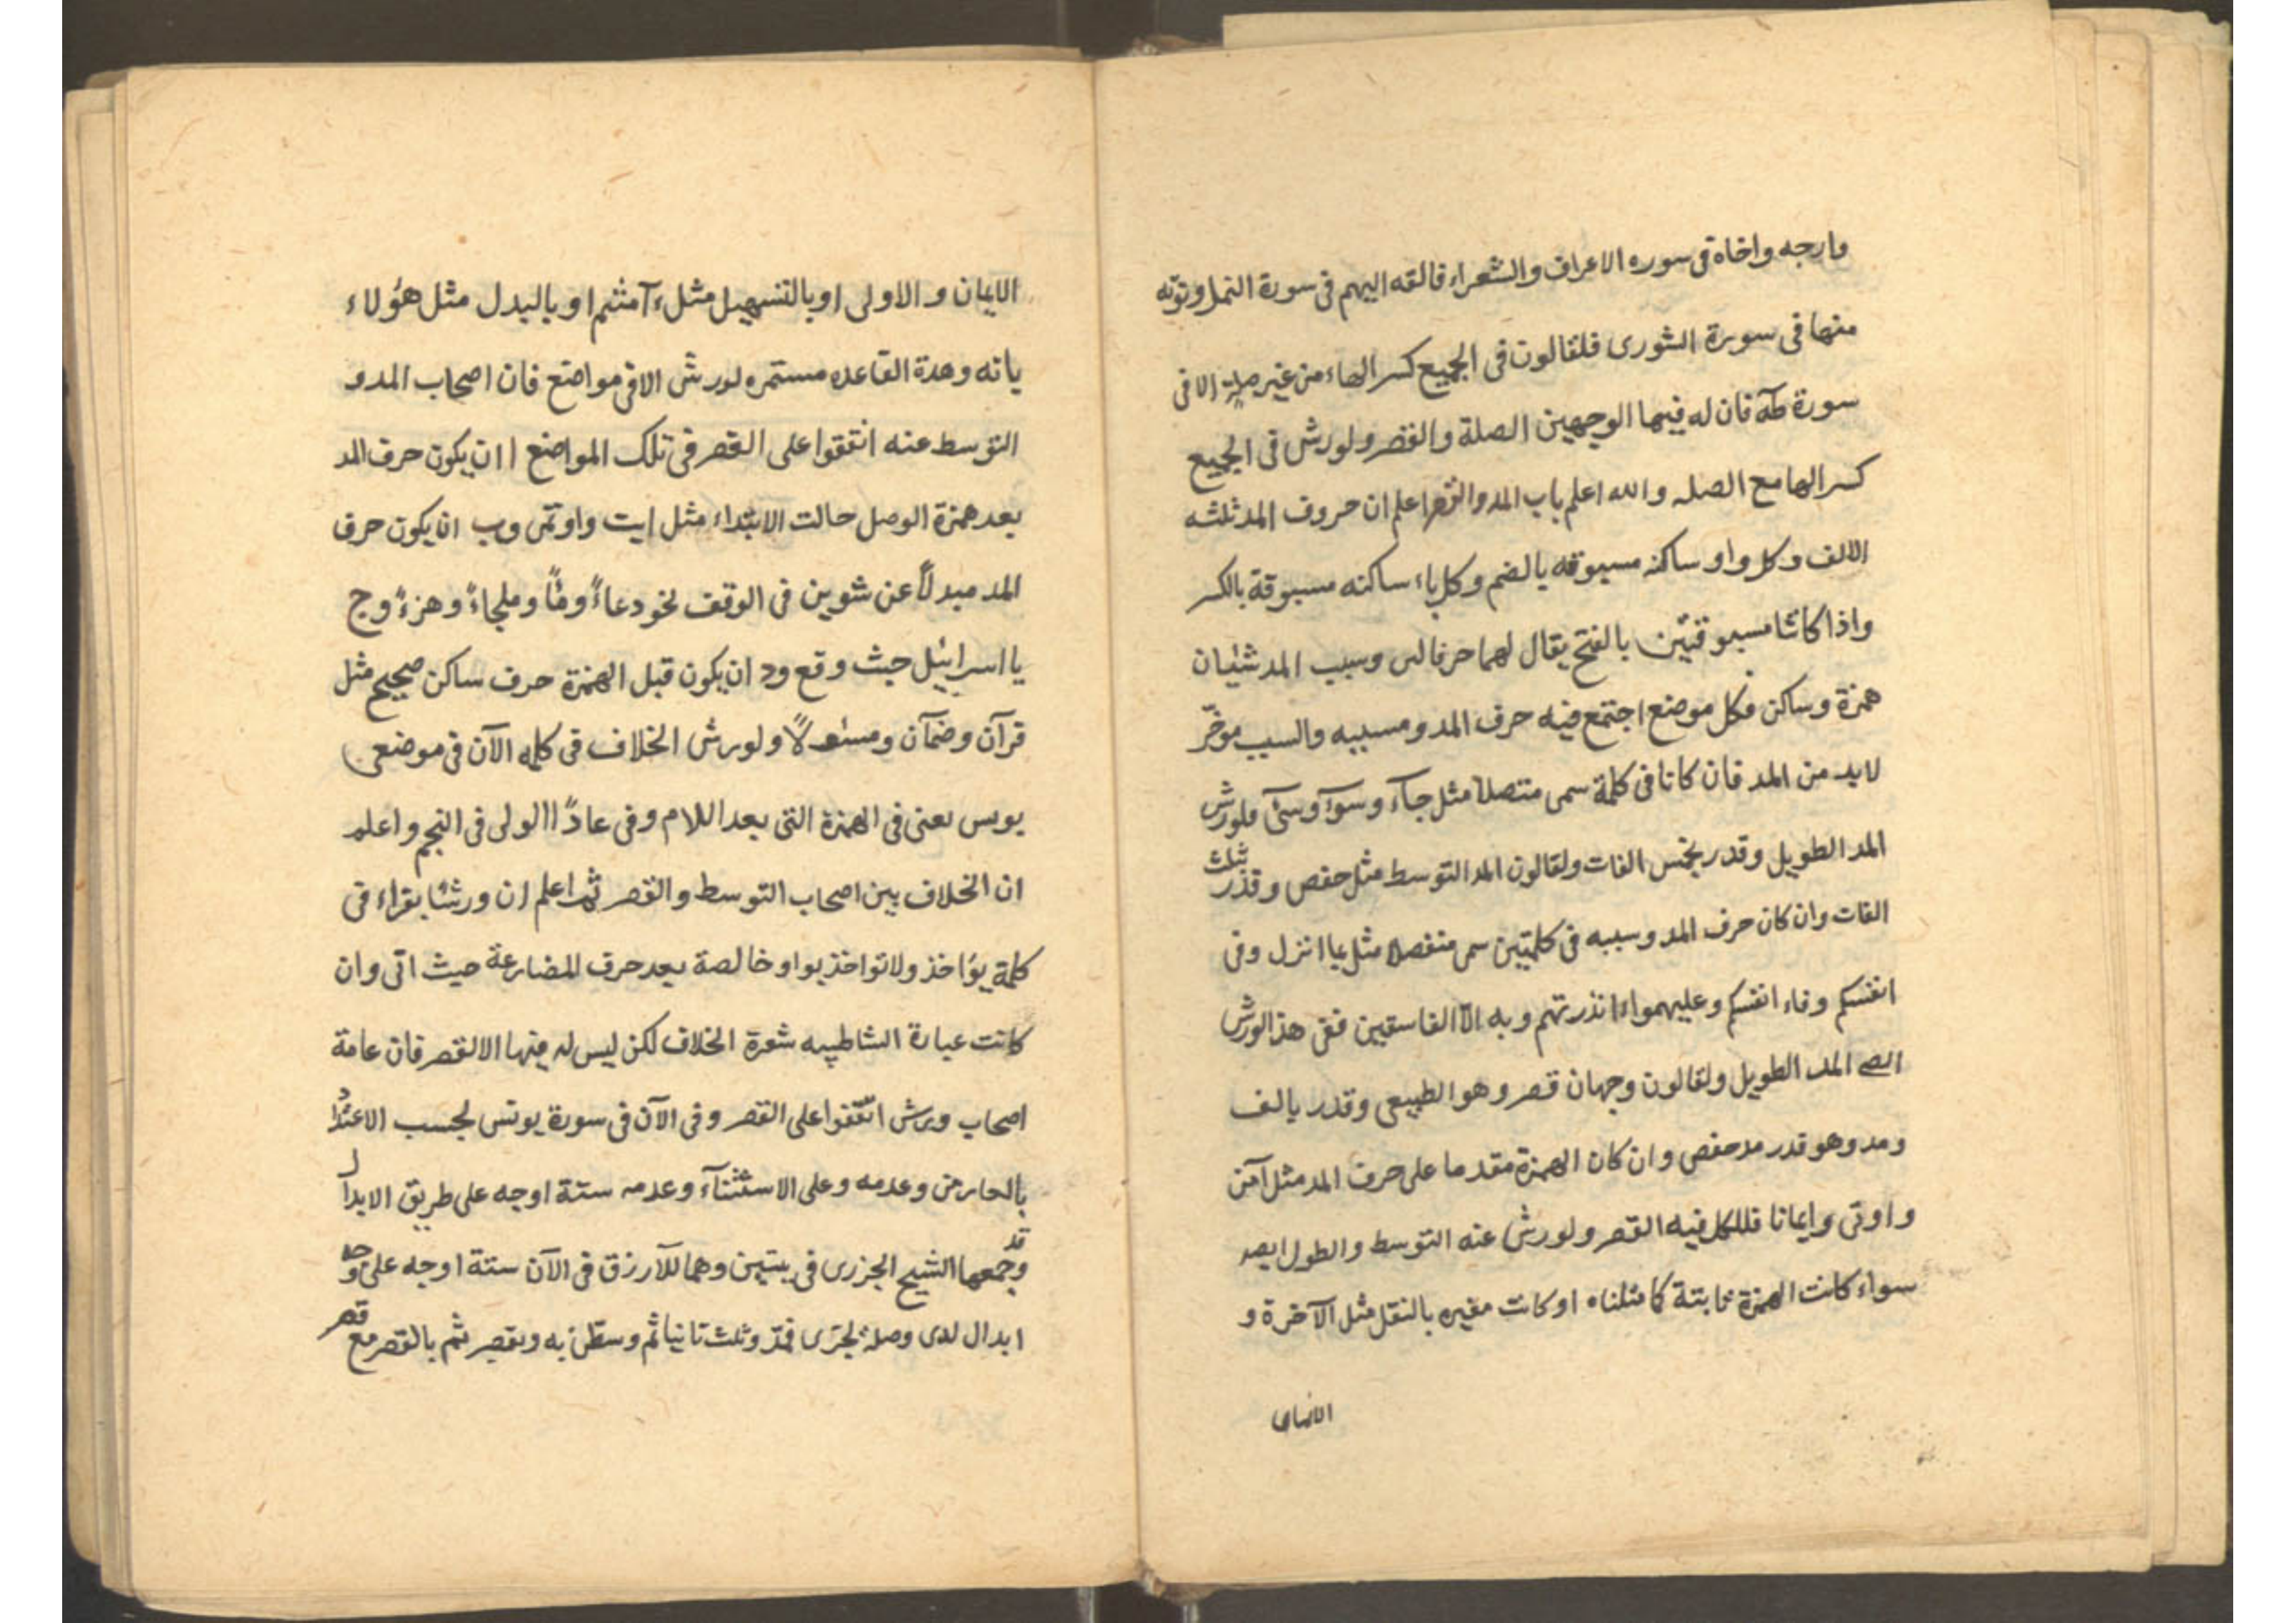 وارجه واخاة فى سوره الاعراف والشعراء فالقه اليهم فى سورة النمل ونوته
منها فى سورة الشورى فلقالون فى الجميع كسر الهاء من غير صلة الا فى
سورة طه فان له فيها الوجهين الصلة والقصر ولورش فى الجميع
كسر الها مع الصله والله اعلم باب المد والقصر اعلم ان حروف المد ثلثه
الالف وكل واو ساكنه مسبوقه بالضم وكل ياء ساكنه مسبوقة بالكسر
واذا كانتا مسبوقتين بالفتح يقال لهما حرفا لين وسبب المد شيئان
همزة وساكن فكل موضع اجتمع فيه حرف المد ومسببه والسبب موخّر
لابد من المد فان كانا فى كلمة سمى متصلا مثل جآء وسوٓء وسىٓء فلورش
المد الطويل وقدر بخمس الفات ولقالون المد التوسط مثل حفص وقدر بثلث
الفات وان كان حرف المد وسببه فى كلمتين سمى منفصلا مثل بما انزل وفى
انفسكم وفاء انفسكم وعليهمواءانذرتهم وبه الّا الفاسقين ففى هذا لورش
المد الطويل ولقالون وجهان قصر وهو الطبيعى وقدر بالف
ومد وهو قدر مد حفص وان كان الهمزة مقدما على حرف المد مثل آمن
واوتى وايمانا فللكل فيه القصر ولورش عنه التوسط والطول ايضا
سواء كانت الهمزة ثابتة كما مثلناه او كانت مغيره بالنقل مثل الآخرة و
الايمان
الايمان والاولى او بالتسهيل مثل ءآمنتم او بالبدل مثل هؤلاء
يانه وهدة القاعده مستمره لورش الا فى مواضع فان اصحاب المد و
التوسط عنه اتفقوا على القصر فى تلك المواضع ا ان يكون حرف المد
بعد همزة الوصل حالت الابتداء مثل ايت واوتمن وب ان يكون حرف
المد مبدلاً عن تنوين فى الوقف نحو دعاءً وماً وملجاءً وهزءً وج
يا اسرائيل حيث وقع ود ان يكون قبل الهمزة حرف ساكن صحيح مثل
قرآن وضمآن ومسئولاً ولورش الخلاف فى كلمه الآن فى موضعى
يونس يعنى فى الهمزة التى بعد اللام وفى عاداً الولى فى النجم واعلم
ان الخلاف بين اصحاب التوسط والقصر ثم اعلم ان ورشا يقراء فى
كلمة يؤاخذ ولا تواخذ بواو خالصة بعد حرف المضارعة حيث اتى وان
كانت عبارة الشاطبيه شعرة الخلاف لكن ليس له فيها الا القصر فان عامة
اصحاب ورش اتفقوا على القصر وفى الآن فى سورة يونس بحسب الاعتداد
بالعارض وعدمه وعلى الاستثنآء وعدمه ستة اوجه على طريق الابدال
وقد جمعها الشيخ الجزرى فى بيتين وهما للازرق فى الآن ستة اوجه على وجه
ابدال لدى وصله تجرى فمدّ وثلث ثانيا ثم وسطن به وبقصر ثم بالقصر مع قصر